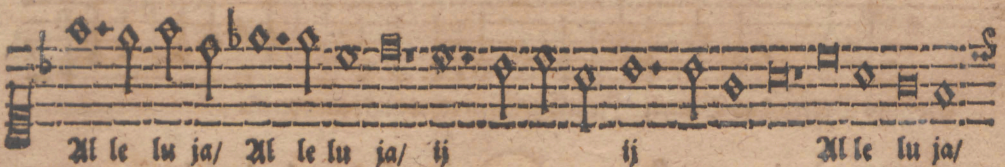 Al le lu ja/ Al le lu ja/ ij ij Al le lu ja/